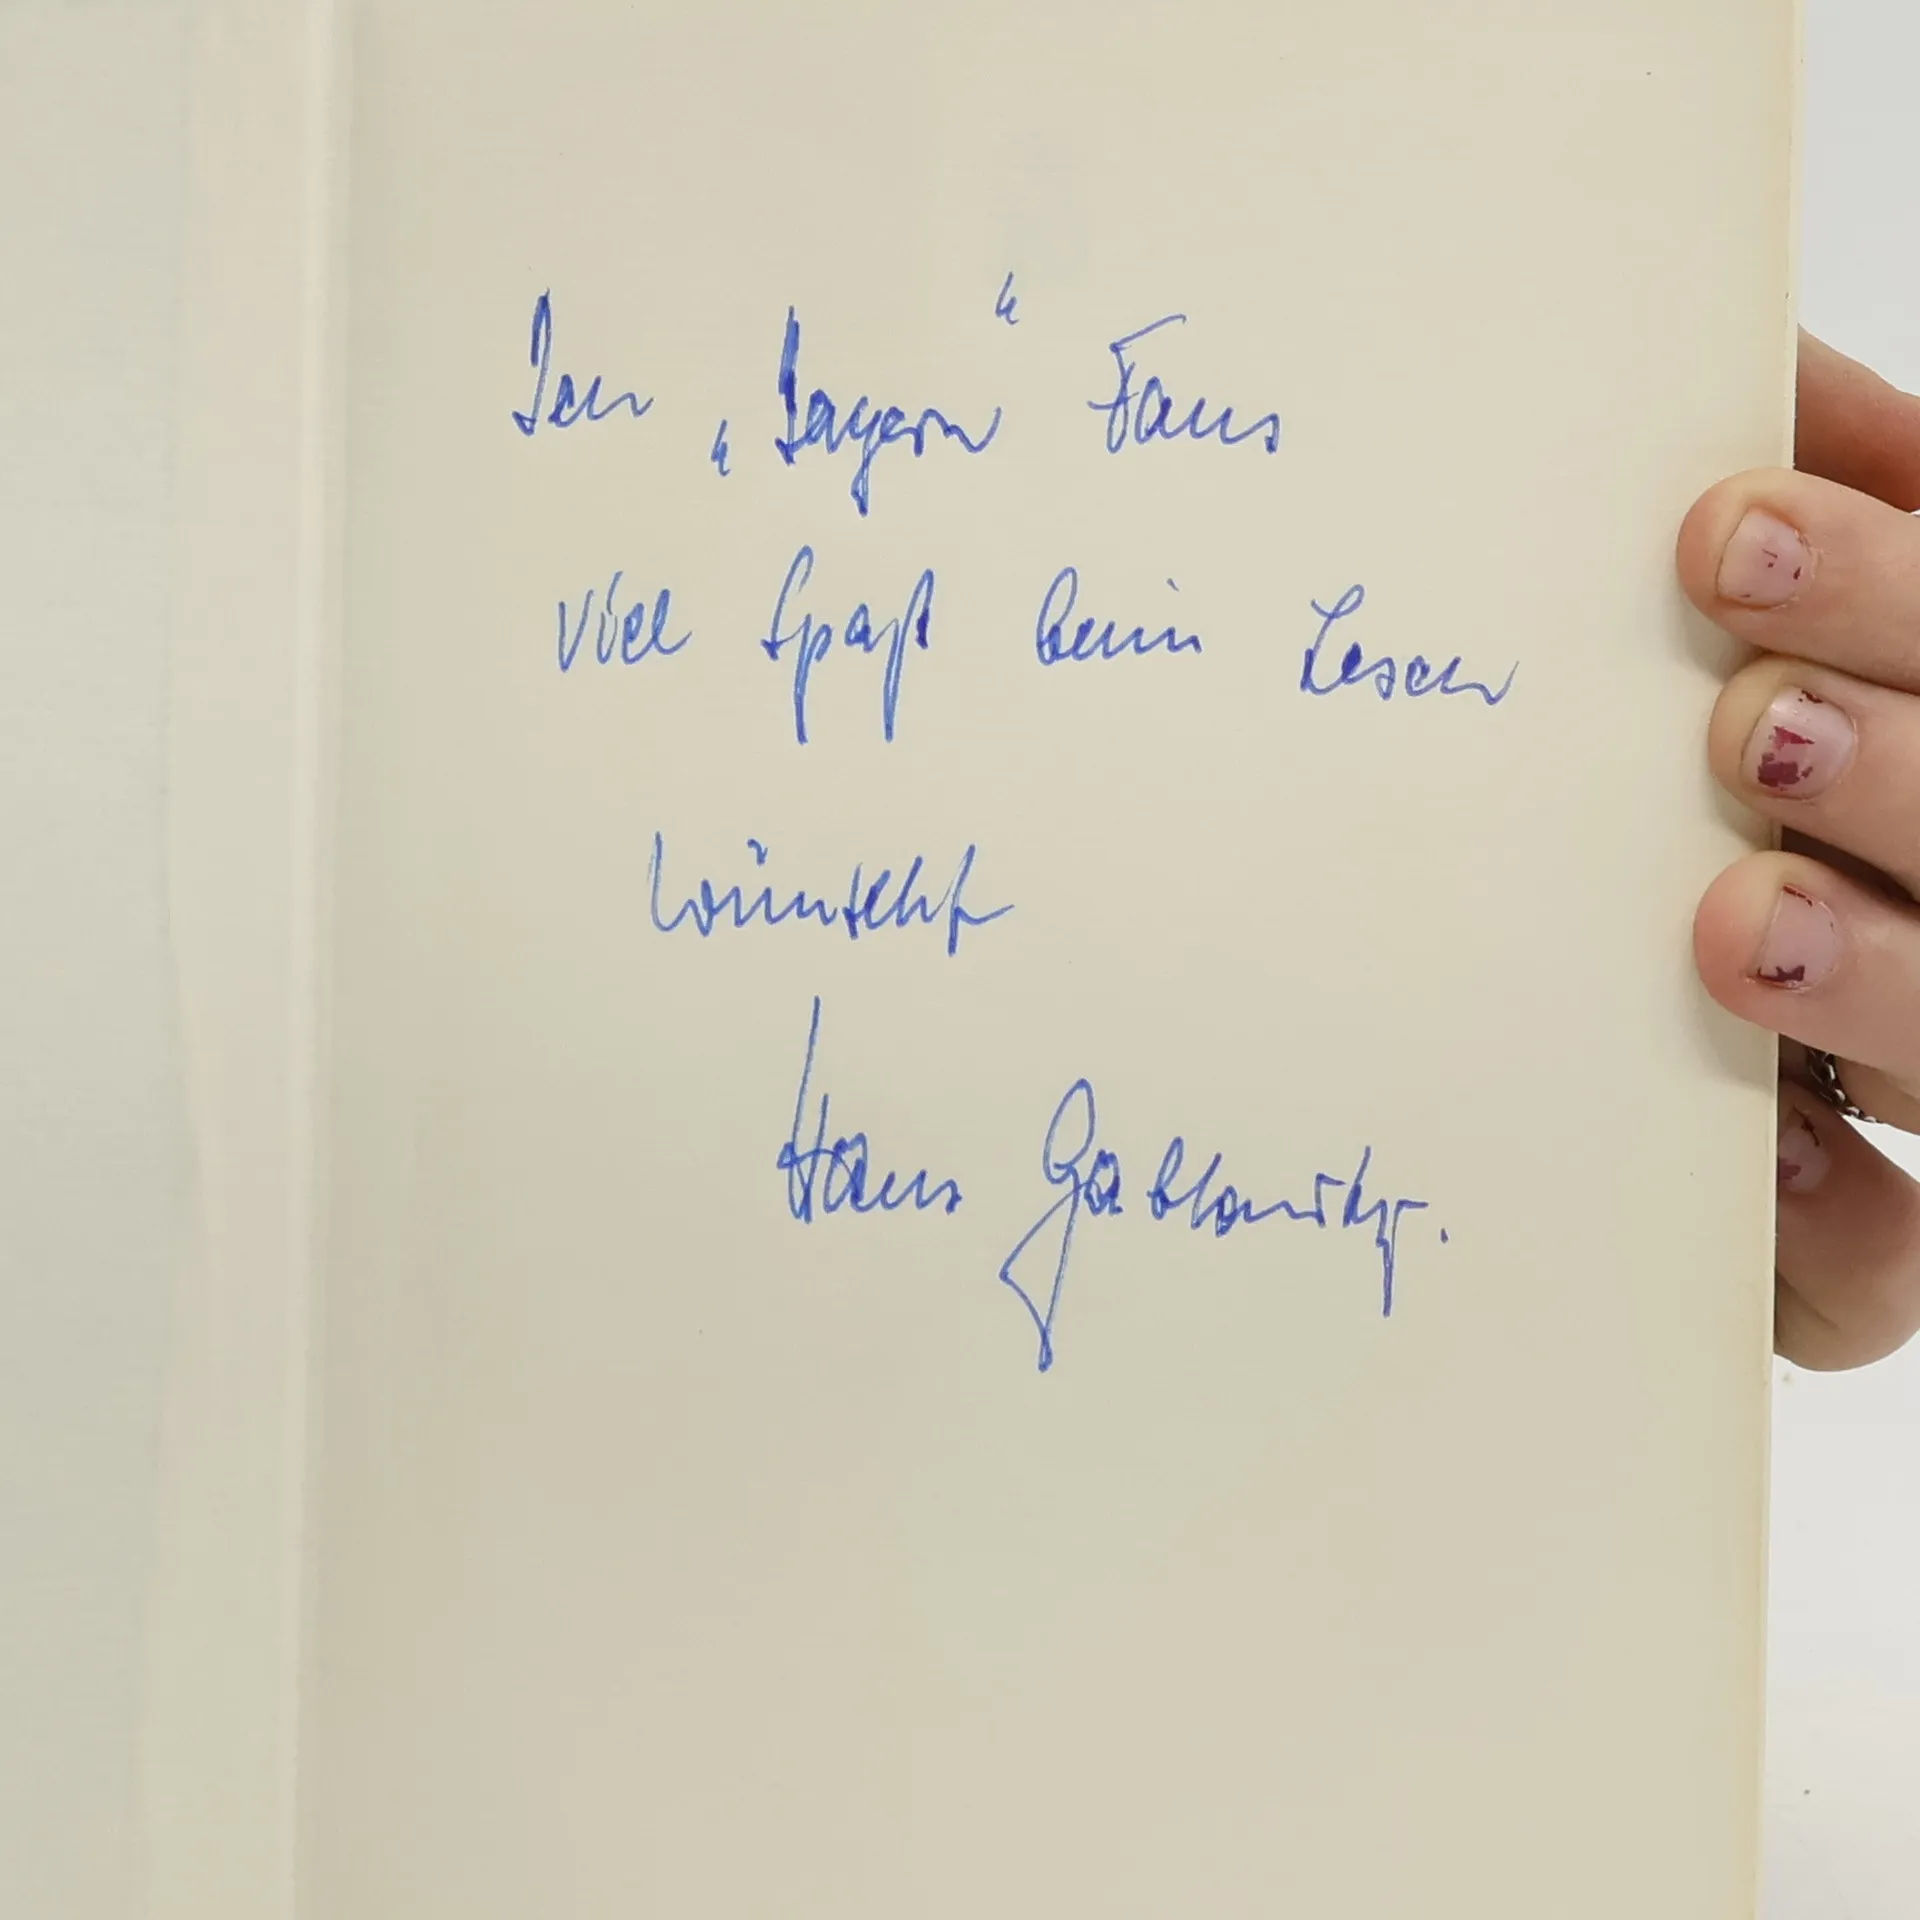 Den „Bayern“ Fans
viel Spaß beim Lesen
wünscht
Hans